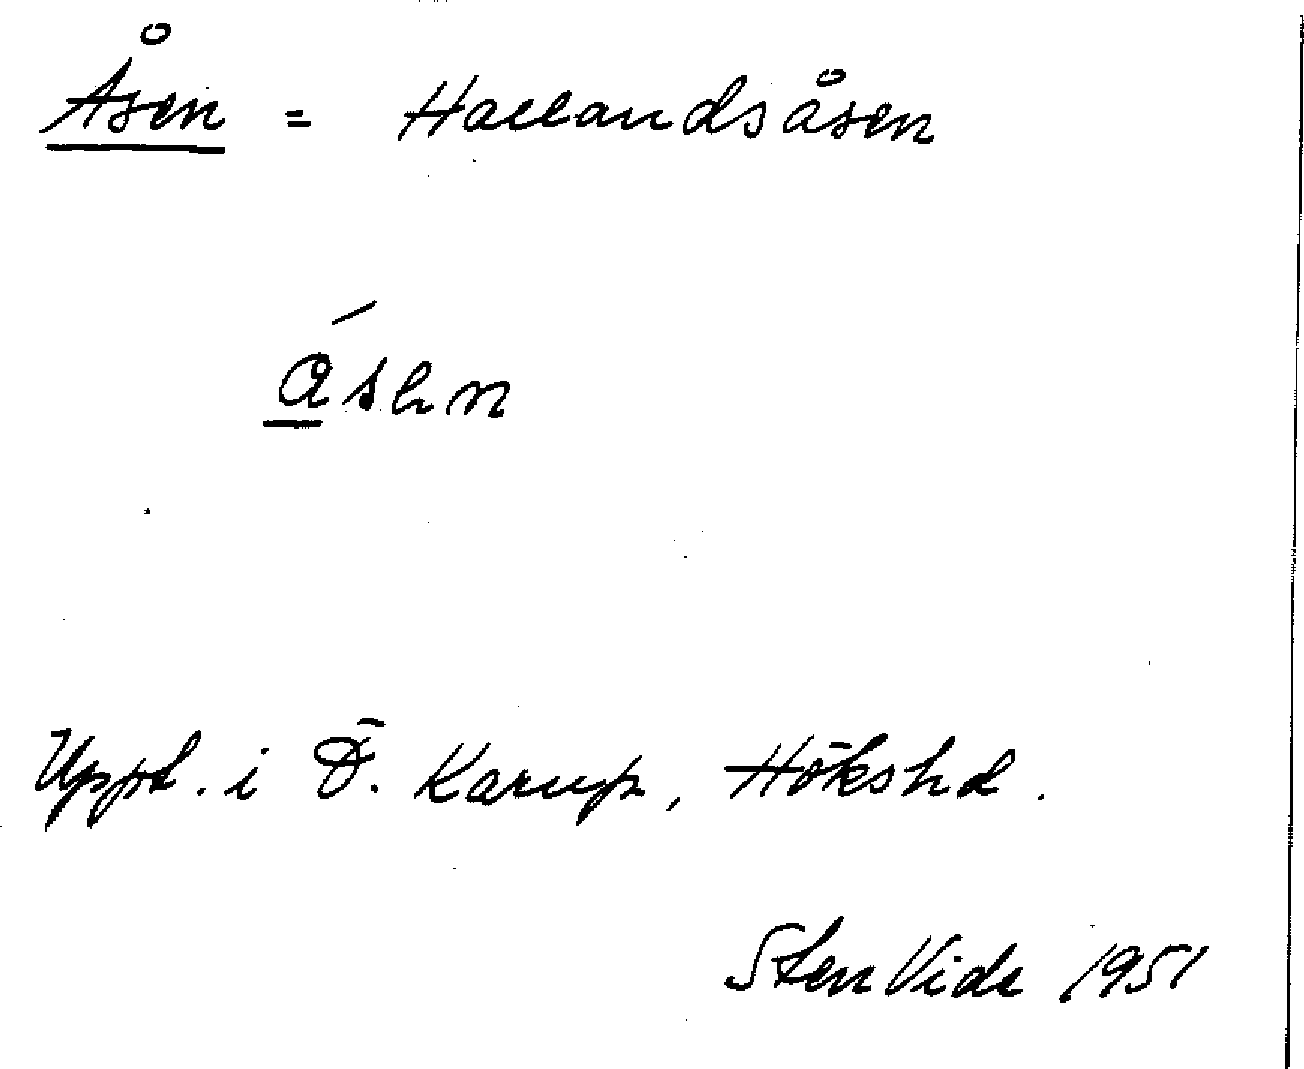 Åsen = Hallandsåsen
ásən
Uppt. i Ö. Karup, Hökshd.
Sten Vide 1951